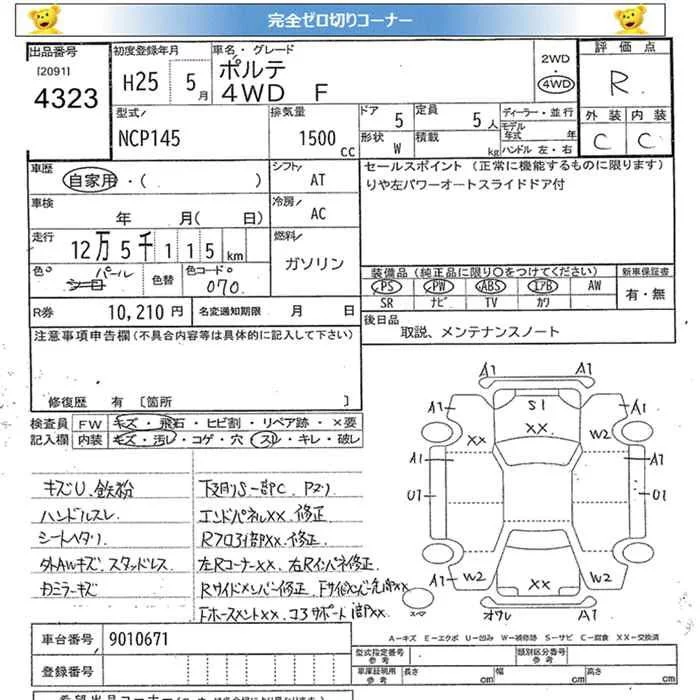 完全ゼロ切りコーナー
出品番号
[2091]
4323
初度登録年月
H25 5月
車名・グレード
ポルテ
4WD F
2WD
・
4WD
評価点
R
外装 内装
C C
型式
NCP145
排気量
1500 cc
ドア 5
定員 5人
形状 W
積載 kg
ディーラー・並行
モデル年式 年
ハンドル 左・右
車歴
自家用・( )
シフト
AT
車検
年 月( 日)
冷房
AC
走行
12万5千115km
燃料
ガソリン
色
パール
色替
色コード
070
R券 10,210円
名変通知期限 月 日
セールスポイント (正常に機能するものに限ります)
りや左パワーオートスライドドア付
装備品 (純正品に限り○をつけてください)
新車保証書
PS PW ABS エアB AW
有・無
SR ナビ TV カワ
後日品
取説、メンテナンスノート
注意事項申告欄(不具合内容等は具体的に記入して下さい)
修復歴 有 〔箇所 〕
検査員記入欄
FW キズ・飛石・ヒビ割・リペア跡・×要
内装 キズ・汚レ・コゲ・穴・スレ・キレ・破レ
キズU、鉄粉
ハンドルスレ.
シートヘタリ.
外AWキズ.スタッドレス.
カミラーキズ
下廻りS一部PC、Pズリ
エンドパネルXX.修正
Rフロア3部PXX.修正.
左RコーナーXX、右Rインパネ修正.
Rサイドメンバー修正.
A1 A1
A1 S1 A1
XX XX W2
A1 A1
U1 U1
A1 W2 XX W2 A1
オワレ A1
A-キズ E-エクボ U-凹み W-補修跡 S-サビ C-腐食 XX-交換済
車台番号 9010671
登録番号
型式指定番号 参考
類別区分番号 参考
車庫証明用 参考
長さ cm
幅 cm
高さ cm